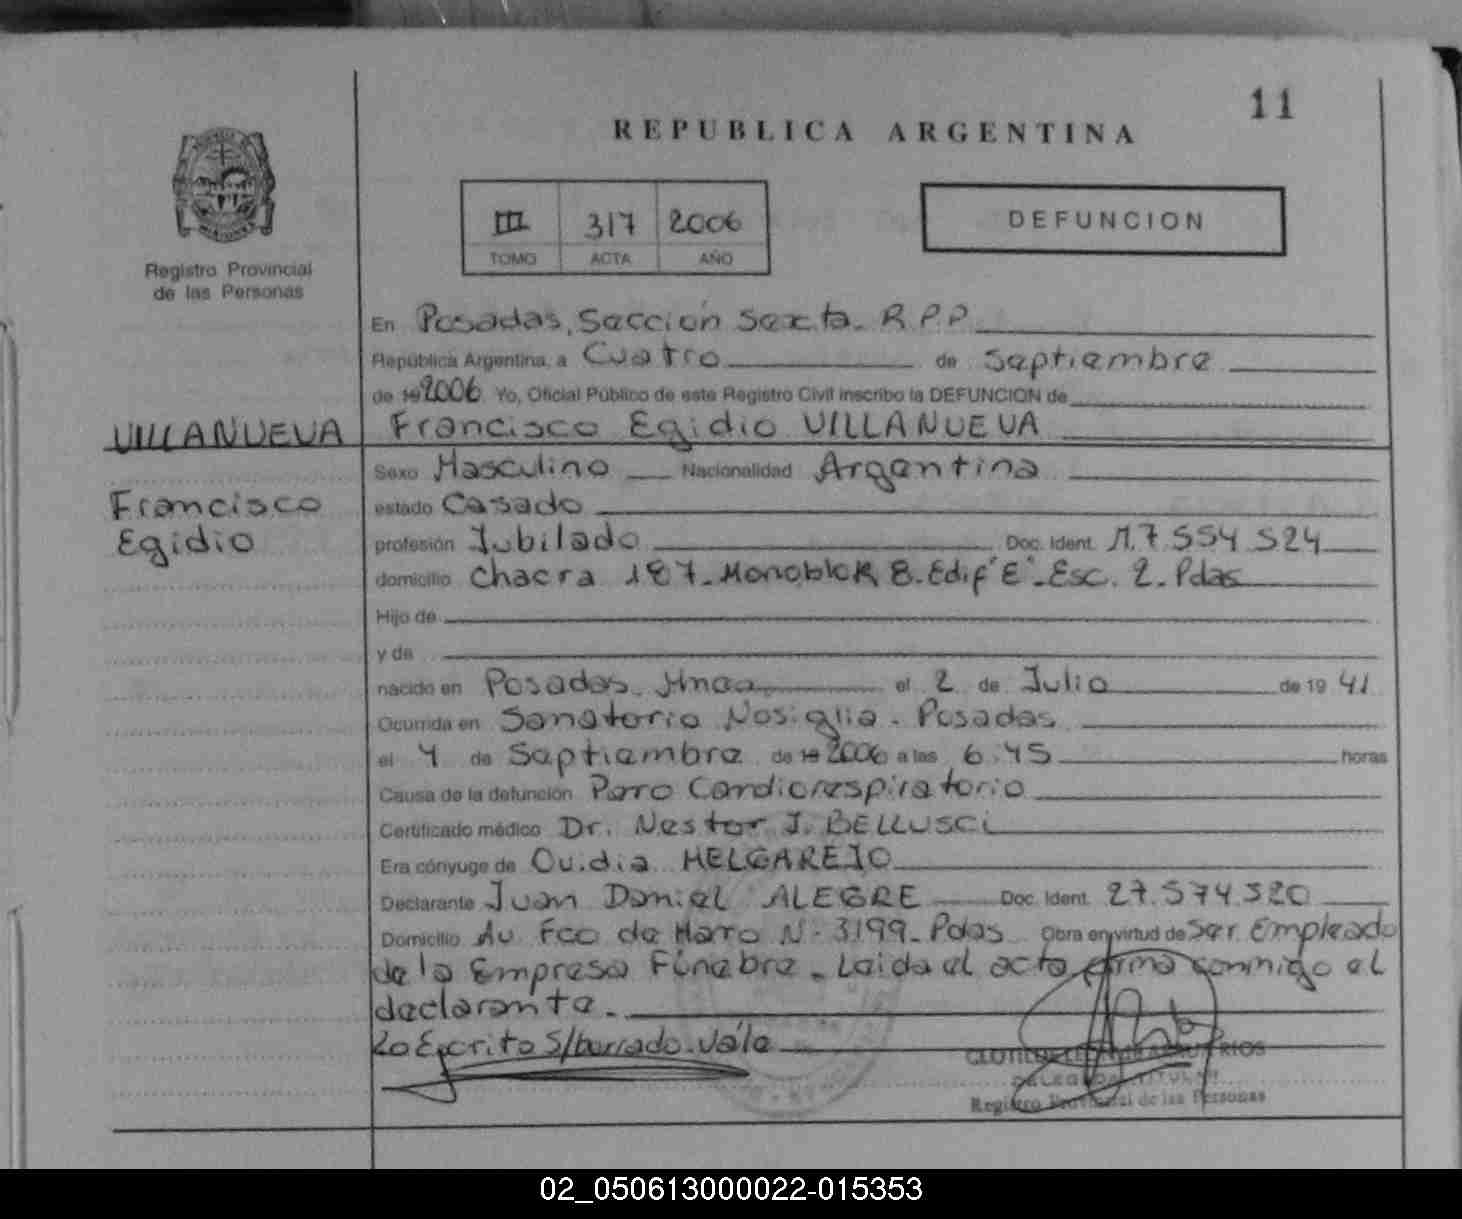 11
REPUBLICA ARGENTINA
III 317 2006
TOMO ACTA AÑO
DEFUNCION
Registro Provincial
de las Personas
En Posadas, Sección Sexta. R.P.P
República Argentina, a Cuatro de Septiembre
de 19 2006 Yo, Oficial Público de este Registro Civil inscribo la DEFUNCION de
VILLANUEVA Francisco Egidio VILLANUEVA
Sexo Masculino Nacionalidad Argentina
Francisco estado Casado
Egidio profesión Jubilado Doc. Ident. M.7.554.524
domicilio Chacra 187-Monoblok 8-Edif "E"-Esc. 2-Pdas
Hijo de
y de
nacido en Posadas, Mnes el 2 de Julio de 19 41
Ocurrida en Sanatorio Nosiglia - Posadas
el 4 de Septiembre de 19 2006 a las 6:45 horas
Causa de la defunción Paro Cardiorespiratorio
Certificado médico Dr. Nestor J. BELLUSCI
Era cónyuge de Ovidia MELGAREJO
Declarante Juan Daniel ALEGRE Doc. Ident. 27.574.320
Domicilio Av. Fco de Haro N° 3199-Pdas Obra en virtud de Ser Empleado
de la Empresa Fúnebre. Leida el acta firma conmigo el
declarante.
Lo Escrito S/borrado. Vale
RIOS
TITULAR
Registro Provincial de las Personas
02_050613000022-015353